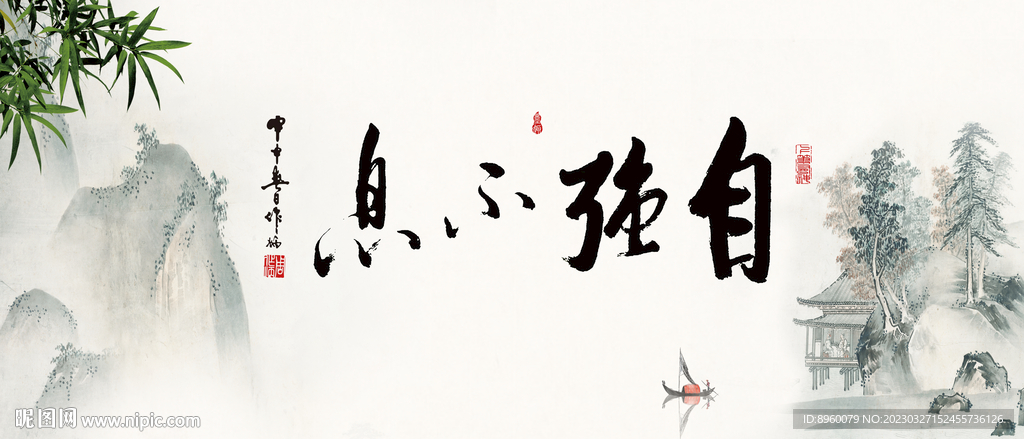 自强不息
甲申春日作炳
昵图网 www.nipic.com
ID:8960079 NO:20230327152455736126